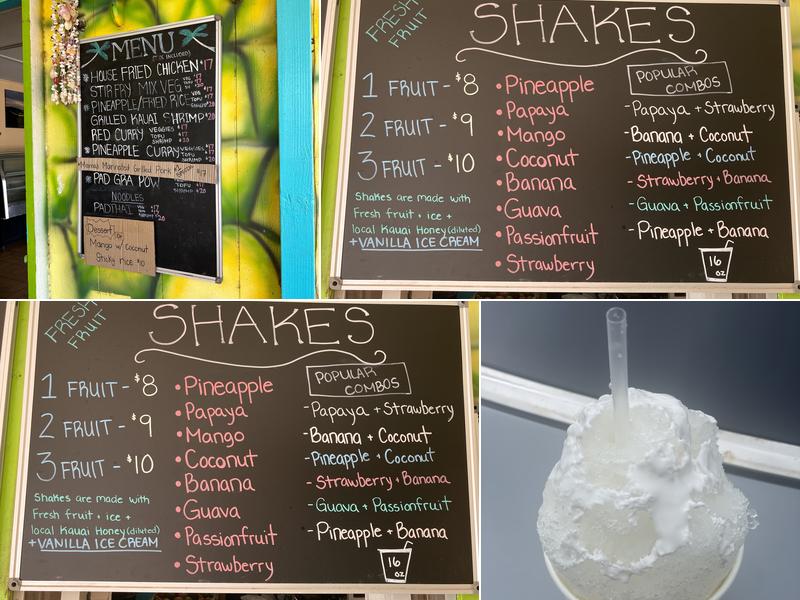 MENU
HOUSE FRIED CHICKEN $17
STIR FRY MIX VEG
PINEAPPLE/FRIED RICE
GRILLED KAUAI SHRIMP $20
RED CURRY VEGGIES TOFU SHRIMP
PINEAPPLE CURRY VEGGIES TOFU SHRIMP
Mamas Marinated Grilled Pork $17
PAD GRA POW TOFU SHRIMP
NOODLES
PADTHAI
Dessert
Mango w/ Coconut
Sticky rice $10
FRESH FRUIT
SHAKES
1 FRUIT - $8
2 FRUIT - $9
3 FRUIT - $10
Shakes are made with
Fresh fruit + ice +
local Kauai Honey (diluted)
+VANILLA ICE CREAM
• Pineapple
• Papaya
• Mango
• Coconut
• Banana
• Guava
• Passionfruit
• Strawberry
POPULAR
COMBOS
- Papaya + Strawberry
- Banana + Coconut
- Pineapple + Coconut
- Strawberry + Banana
- Guava + Passionfruit
- Pineapple + Banana
16
OZ
FRESH FRUIT
SHAKES
1 FRUIT - $8
2 FRUIT - $9
3 FRUIT - $10
Shakes are made with
Fresh fruit + ice +
local Kauai Honey (diluted)
+VANILLA ICE CREAM
• Pineapple
• Papaya
• Mango
• Coconut
• Banana
• Guava
• Passionfruit
• Strawberry
POPULAR
COMBOS
- Papaya + Strawberry
- Banana + Coconut
- Pineapple + Coconut
- Strawberry + Banana
- Guava + Passionfruit
- Pineapple + Banana
16
OZ